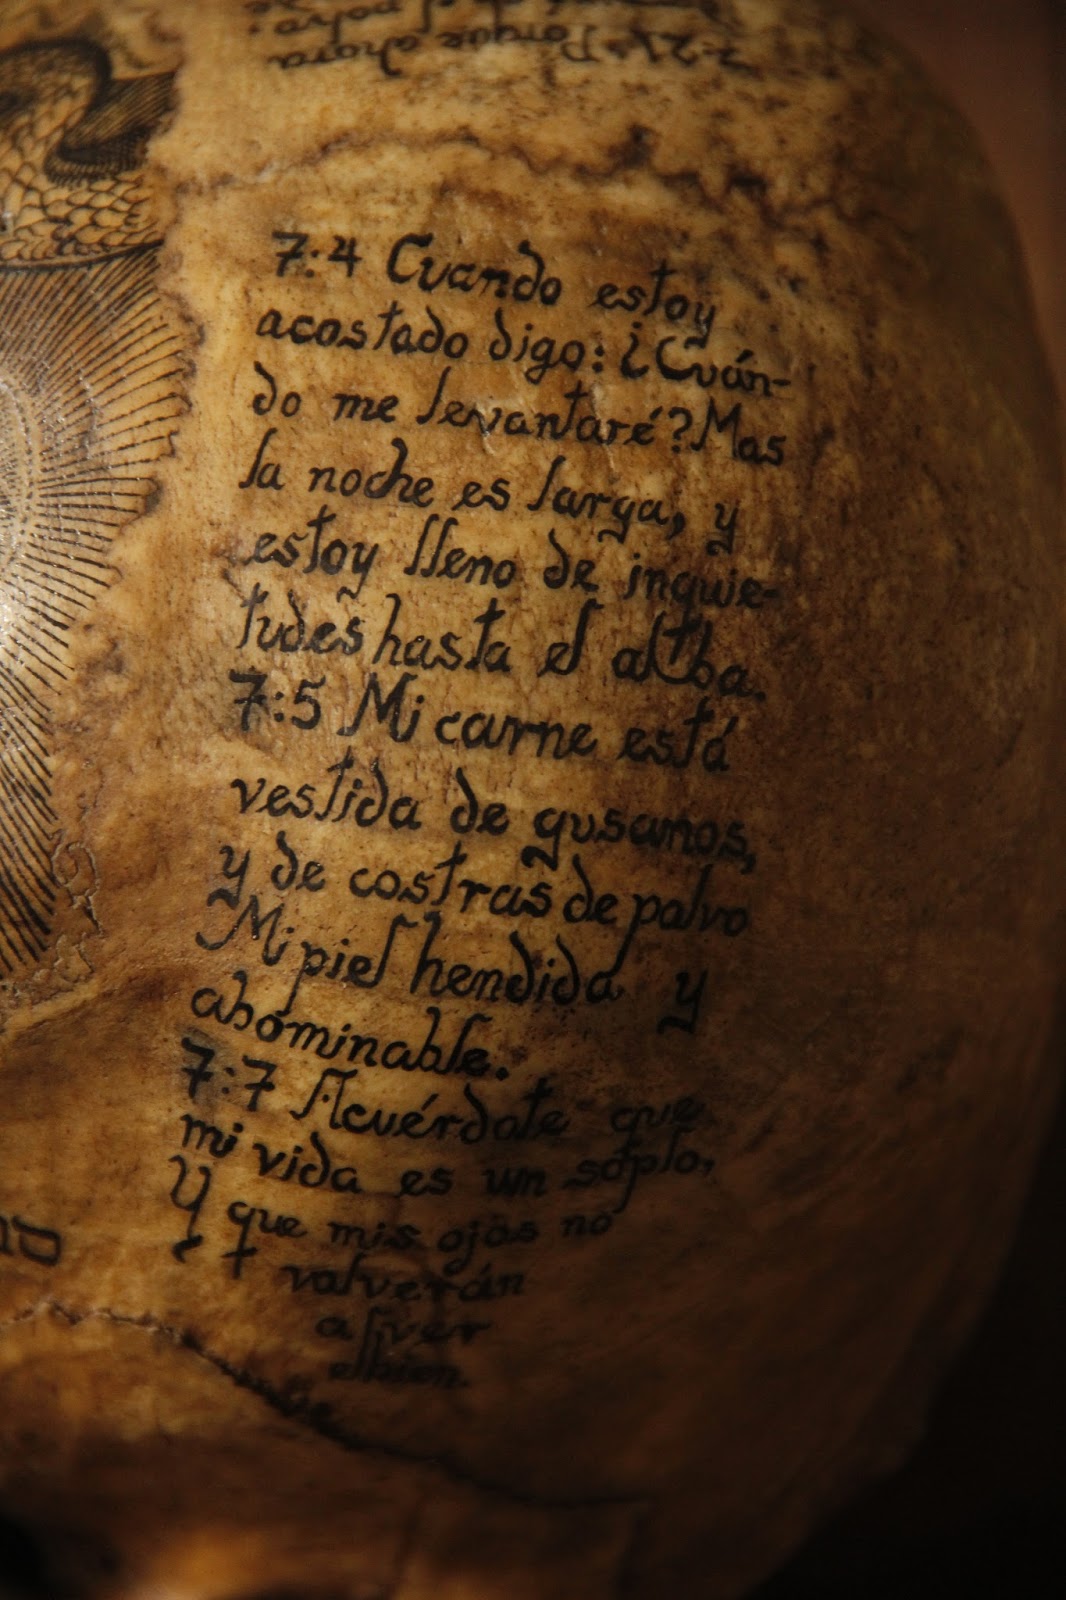 7:21 Porque ahora
7:4 Cuando estoy
acostado digo: ¿Cuán-
do me levantaré? Mas
la noche es larga, y
estoy lleno de inquie-
tudes hasta el alba.
7:5 Mi carne está
vestida de gusanos,
y de costras de polvo
Mi piel hendida y
abominable.
7:7 Acuérdate que
mi vida es un soplo,
Y que mis ojos no
volverán
a ver
el bien.